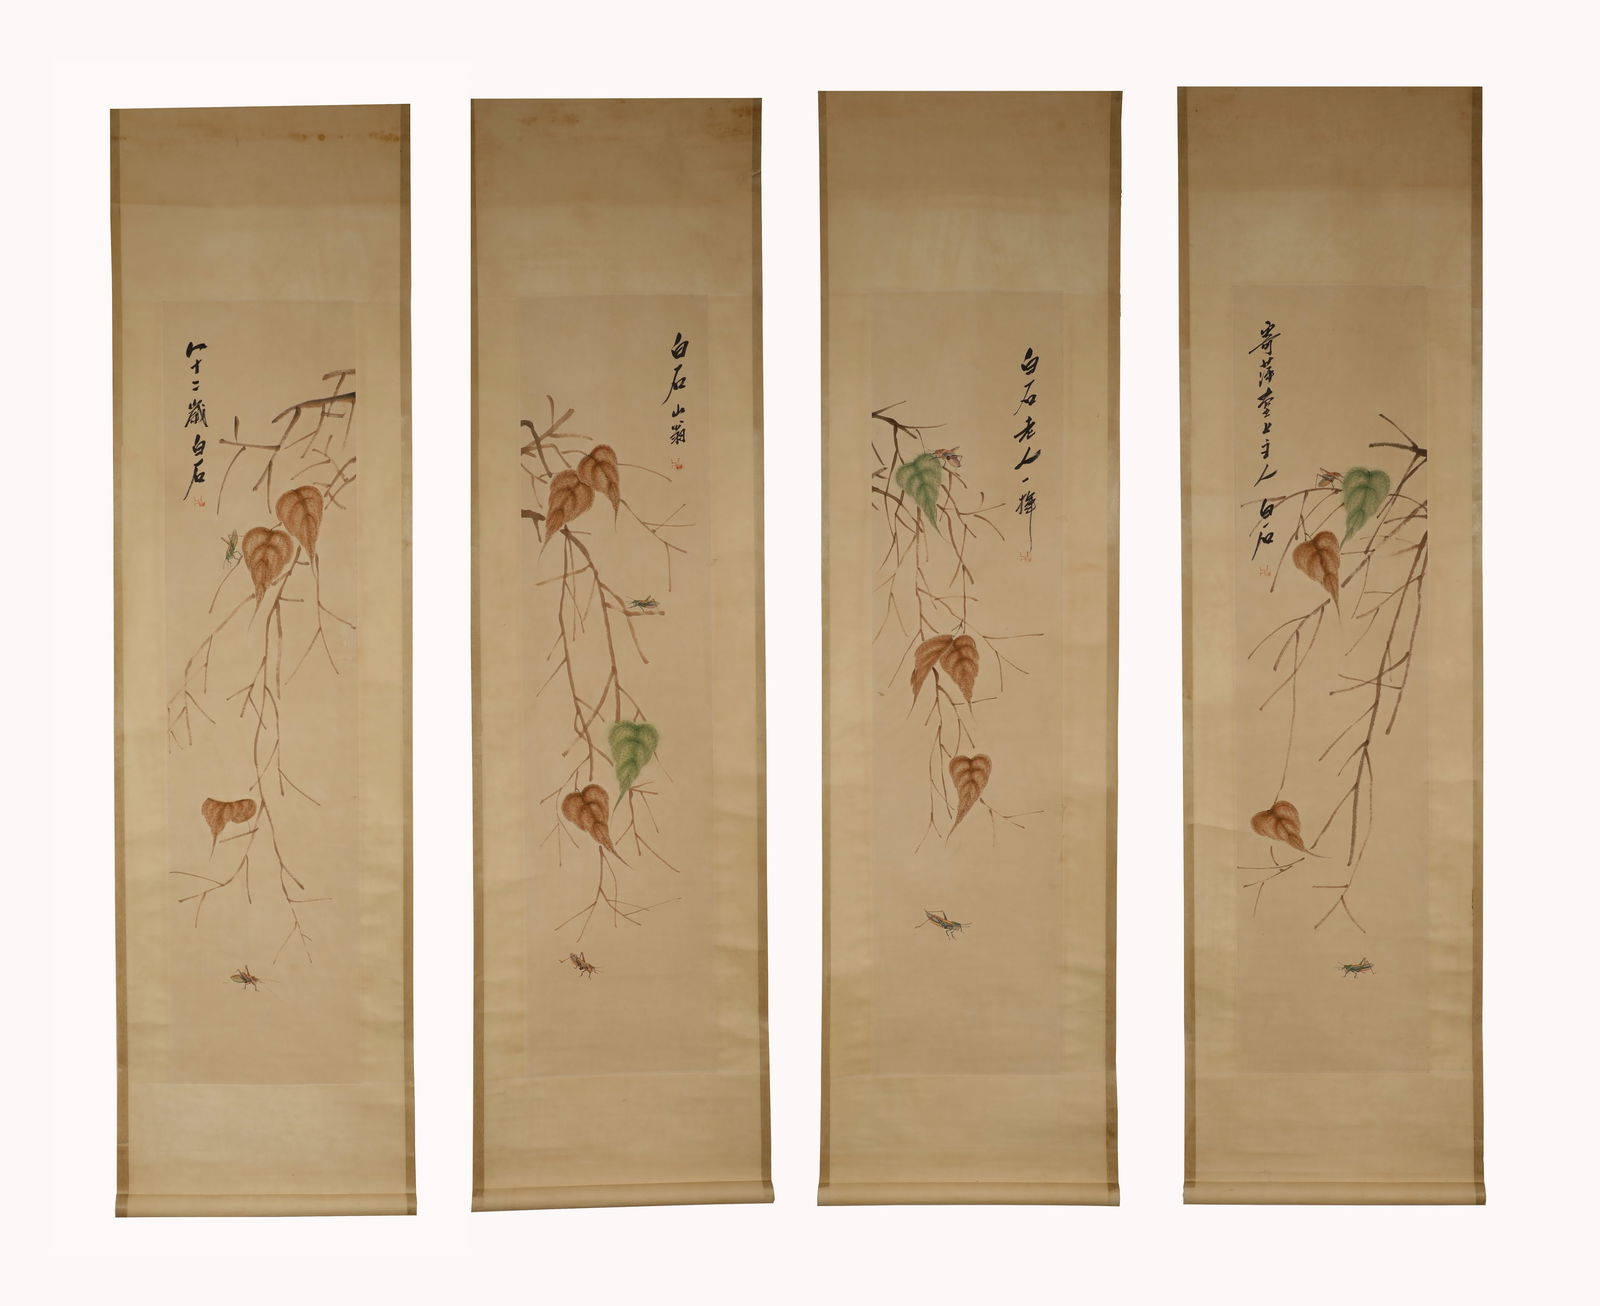 八十二歲白石
白石山翁
白石老人一揮
寄萍堂上主人白石